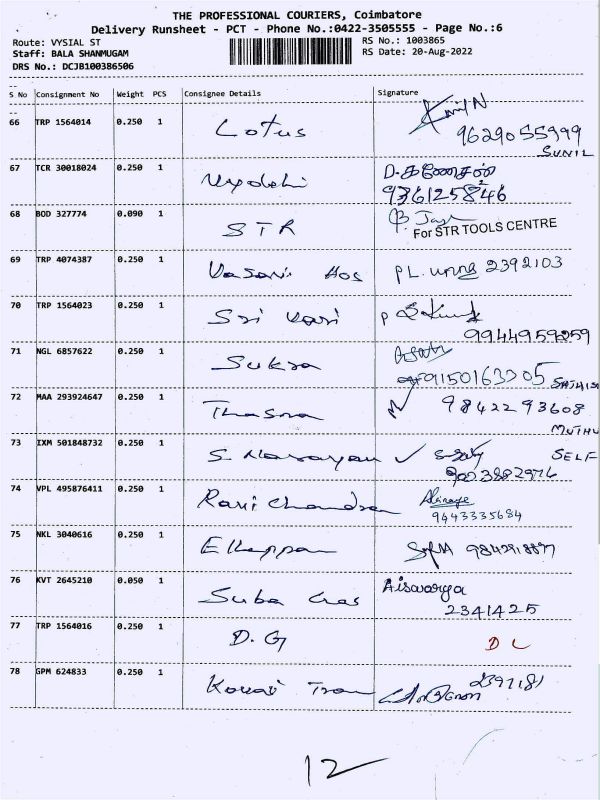 THE PROFESSIONAL COURIERS, Coimbatore
Delivery Runsheet - PCT - Phone No.:0422-3505555 - Page No.:6
Route: VYSIAL ST
RS No.: 1003865
Staff: BALA SHANMUGAM
RS Date: 20-Aug-2022
DRS No.: DCJB100386506
S No Consignment No Weight PCS Consignee Details Signature
66 TRP 1564014 0.250 1 Lotus
9629055999
SUNIL
67 TCR 30018024 0.250 1 D.கணேசன்
9361258246
68 BOD 327774 0.090 1 STR
For STR TOOLS CENTRE
69 TRP 4074387 0.250 1 Vasavi Hos PL. 2392103
70 TRP 1564023 0.250 1 Sri Hari
9944959259
71 NGL 6857622 0.250 1 Sukra
9150163305 SATHISH
72 MAA 293924647 0.250 1 98422 93608
MUTHU
73 IXM 501848732 0.250 1 S. Narayan ✓ SELF
74 VPL 495876411 0.250 1 Ravi Chandran
9443335684
75 NKL 3040616 0.250 1 Ellappan
76 KVT 2645210 0.050 1 Suba Gas Aiswarya
2341425
77 TRP 1564016 0.250 1 D.G DL
78 GPM 624833 0.250 1 Kovai Tran
12